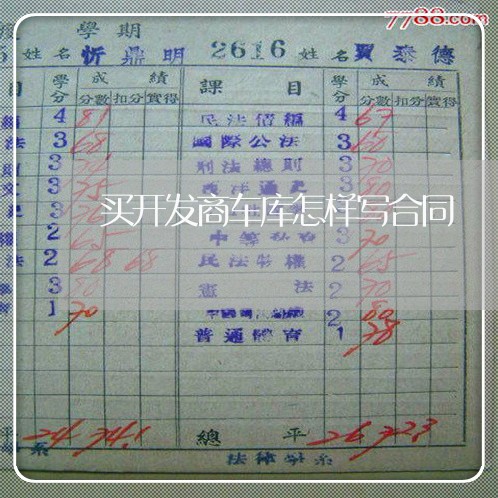 7788.com
學期
姓名 忻鼎明 2616 姓名 賈泰德
目 學分 成績 課目 學分 成績
分數 扣分 實得 分數 扣分 實得
4 81 民法債編 4 67
法 3 68 國際公法 3 60
3 刑法總則 3 70
3 75 3 80
买开发商车库怎样写合同
2 65 3 70
法 2 68 68 民法物權 2 65
3 80 憲法 2 70
1 70 2 80
普通體育 1 78
平 24 74.1 總平 26 72.3
系 法律學系